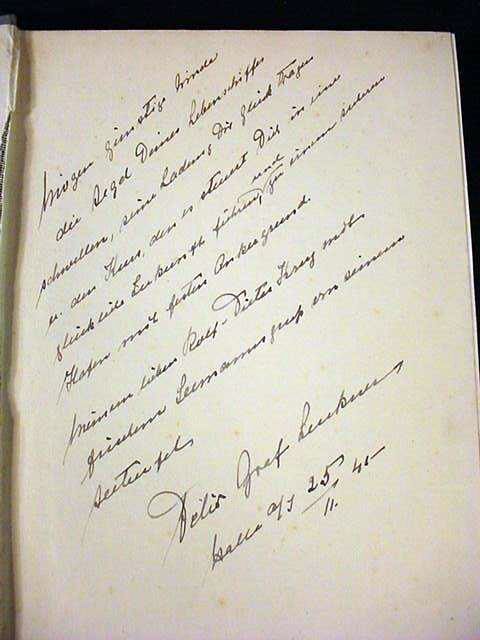 Mögen günstige Winde
die Segel Deines Lebensschiffes
schwellen, seine Ladung Dir Glück tragen
u. den Kurs, den es steuert Dich in eine
glückliche Zukunft führen, und zu einem sicheren
Hafen mit festen Ankergrund.
Meinem lieben Rolf-Dieter Krug mit
Seemannsgruß von seinem
Seeteufel
Felix Graf Luckner
Halle a/S 25/11. 45